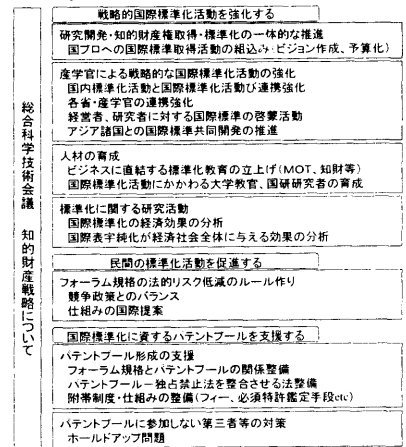 総合科学技術会議 知的財産戦略について
戦略的国際標準化活動を強化する
研究開発・知的財産権取得・標準化の一体的な推進
国プロへの国際標準取得活動の組込み(ビジョン作成、予算化)
産学官による戦略的な国際標準化活動の強化
国内標準化活動と国際標準化活動び連携強化
各省・産学官の連携強化
経営者、研究者に対する国際標準の啓蒙活動
アジア諸国との国際標準共同開発の推進
人材の育成
ビジネスに直結する標準化教育の立上げ(MOT、知財等)
国際標準化活動にかかわる大学教官、国研研究者の育成
標準化に関する研究活動
国際標準化の経済効果の分析
国際表宇純化が経済社会全体に与える効果の分析
民間の標準化活動を促進する
フォーラム規格の法的リスク低減のルール作り
競争政策とのバランス
仕組みの国際提案
国際標準化に資するパテントプールを支援する
パテントプール形成の支援
フォーラム規格とパテントプールの関係整備
パテントプールー独占禁止法を整合させる法整備
附帯制度・仕組みの整備(フィー、必須特許鑑定手段etc)
パテントプールに参加しない第三者等の対策
ホールドアップ問題